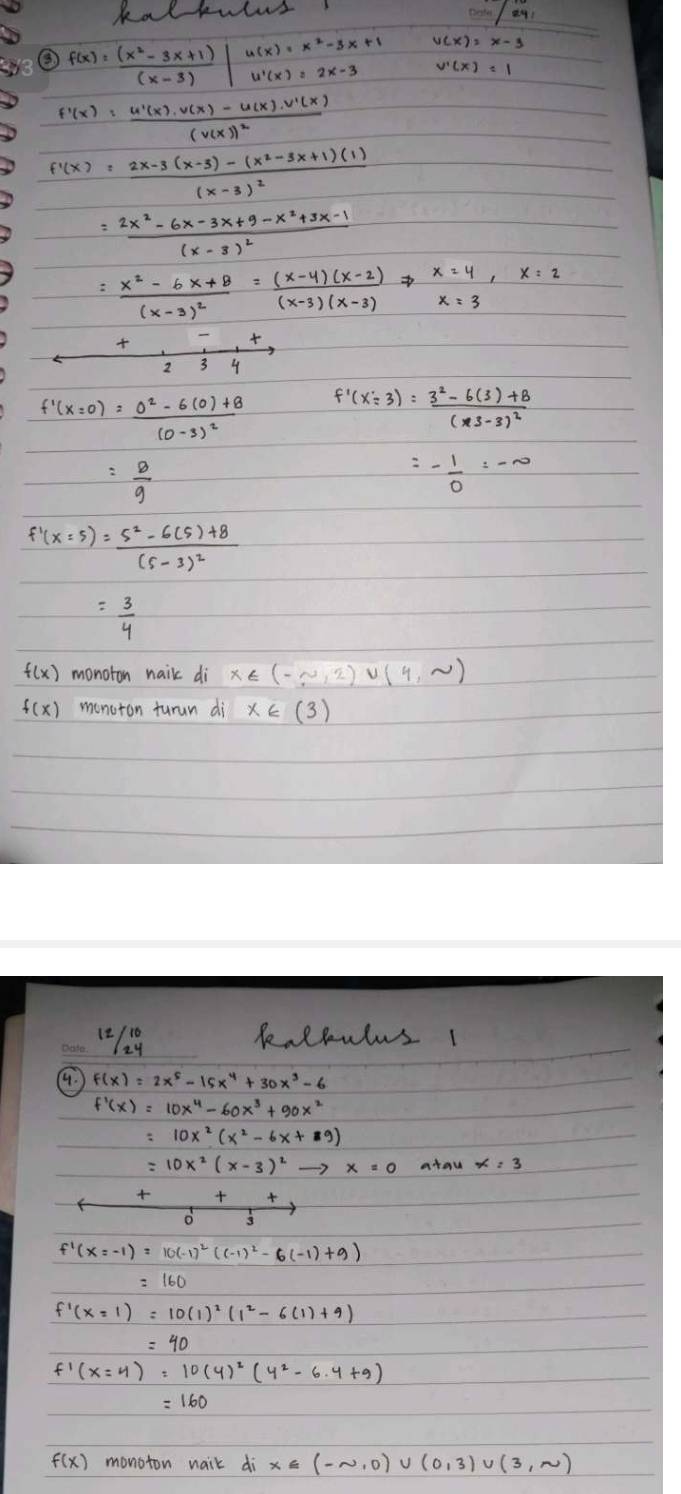 kalkulus 1
Date /24
3/3
③ f(x) = (x² - 3x+1) / (x-3) | u(x) = x²-3x+1 v(x) = x-3
u'(x) = 2x-3 v'(x) = 1
f'(x) = u'(x).v(x) - u(x).v'(x) / (v(x))²
f'(x) = 2x-3(x-3) - (x²-3x+1)(1) / (x-3)²
= 2x² - 6x - 3x+9 - x²+3x-1 / (x-3)²
= x² - 6x+8 / (x-3)² = (x-4)(x-2) / (x-3)(x-3) ⇒ x = 4 , x = 2
x = 3
+ - +
2 3 4
f'(x=0) = 0² - 6(0) +8 / (0-3)² f'(x=3) = 3² - 6(3) +8 / (3-3)²
= 8/9 = - 1/0 = -∞
f'(x=5) = 5² - 6(5) +8 / (5-3)²
= 3/4
f(x) monoton naik di x ∈ (-∞, 2) ∪ (4, ∞)
f(x) monoton turun di x ∈ (3)
Date. 12/10/24 kalkulus 1
④. f(x) = 2x⁵ - 15x⁴ + 30x³ - 6
f'(x) = 10x⁴ - 60x³ + 90x²
= 10x² (x² - 6x + 9)
= 10x² (x-3)² → x = 0 atau x = 3
+ + +
0 3
f'(x=-1) = 10(-1)² ((-1)² - 6(-1)+9)
= 160
f'(x=1) = 10(1)² (1² - 6(1)+9)
= 40
f'(x=4) = 10(4)² (4² - 6.4+9)
= 160
f(x) monoton naik di x ∈ (-∞,0) ∪ (0,3) ∪ (3,∞)